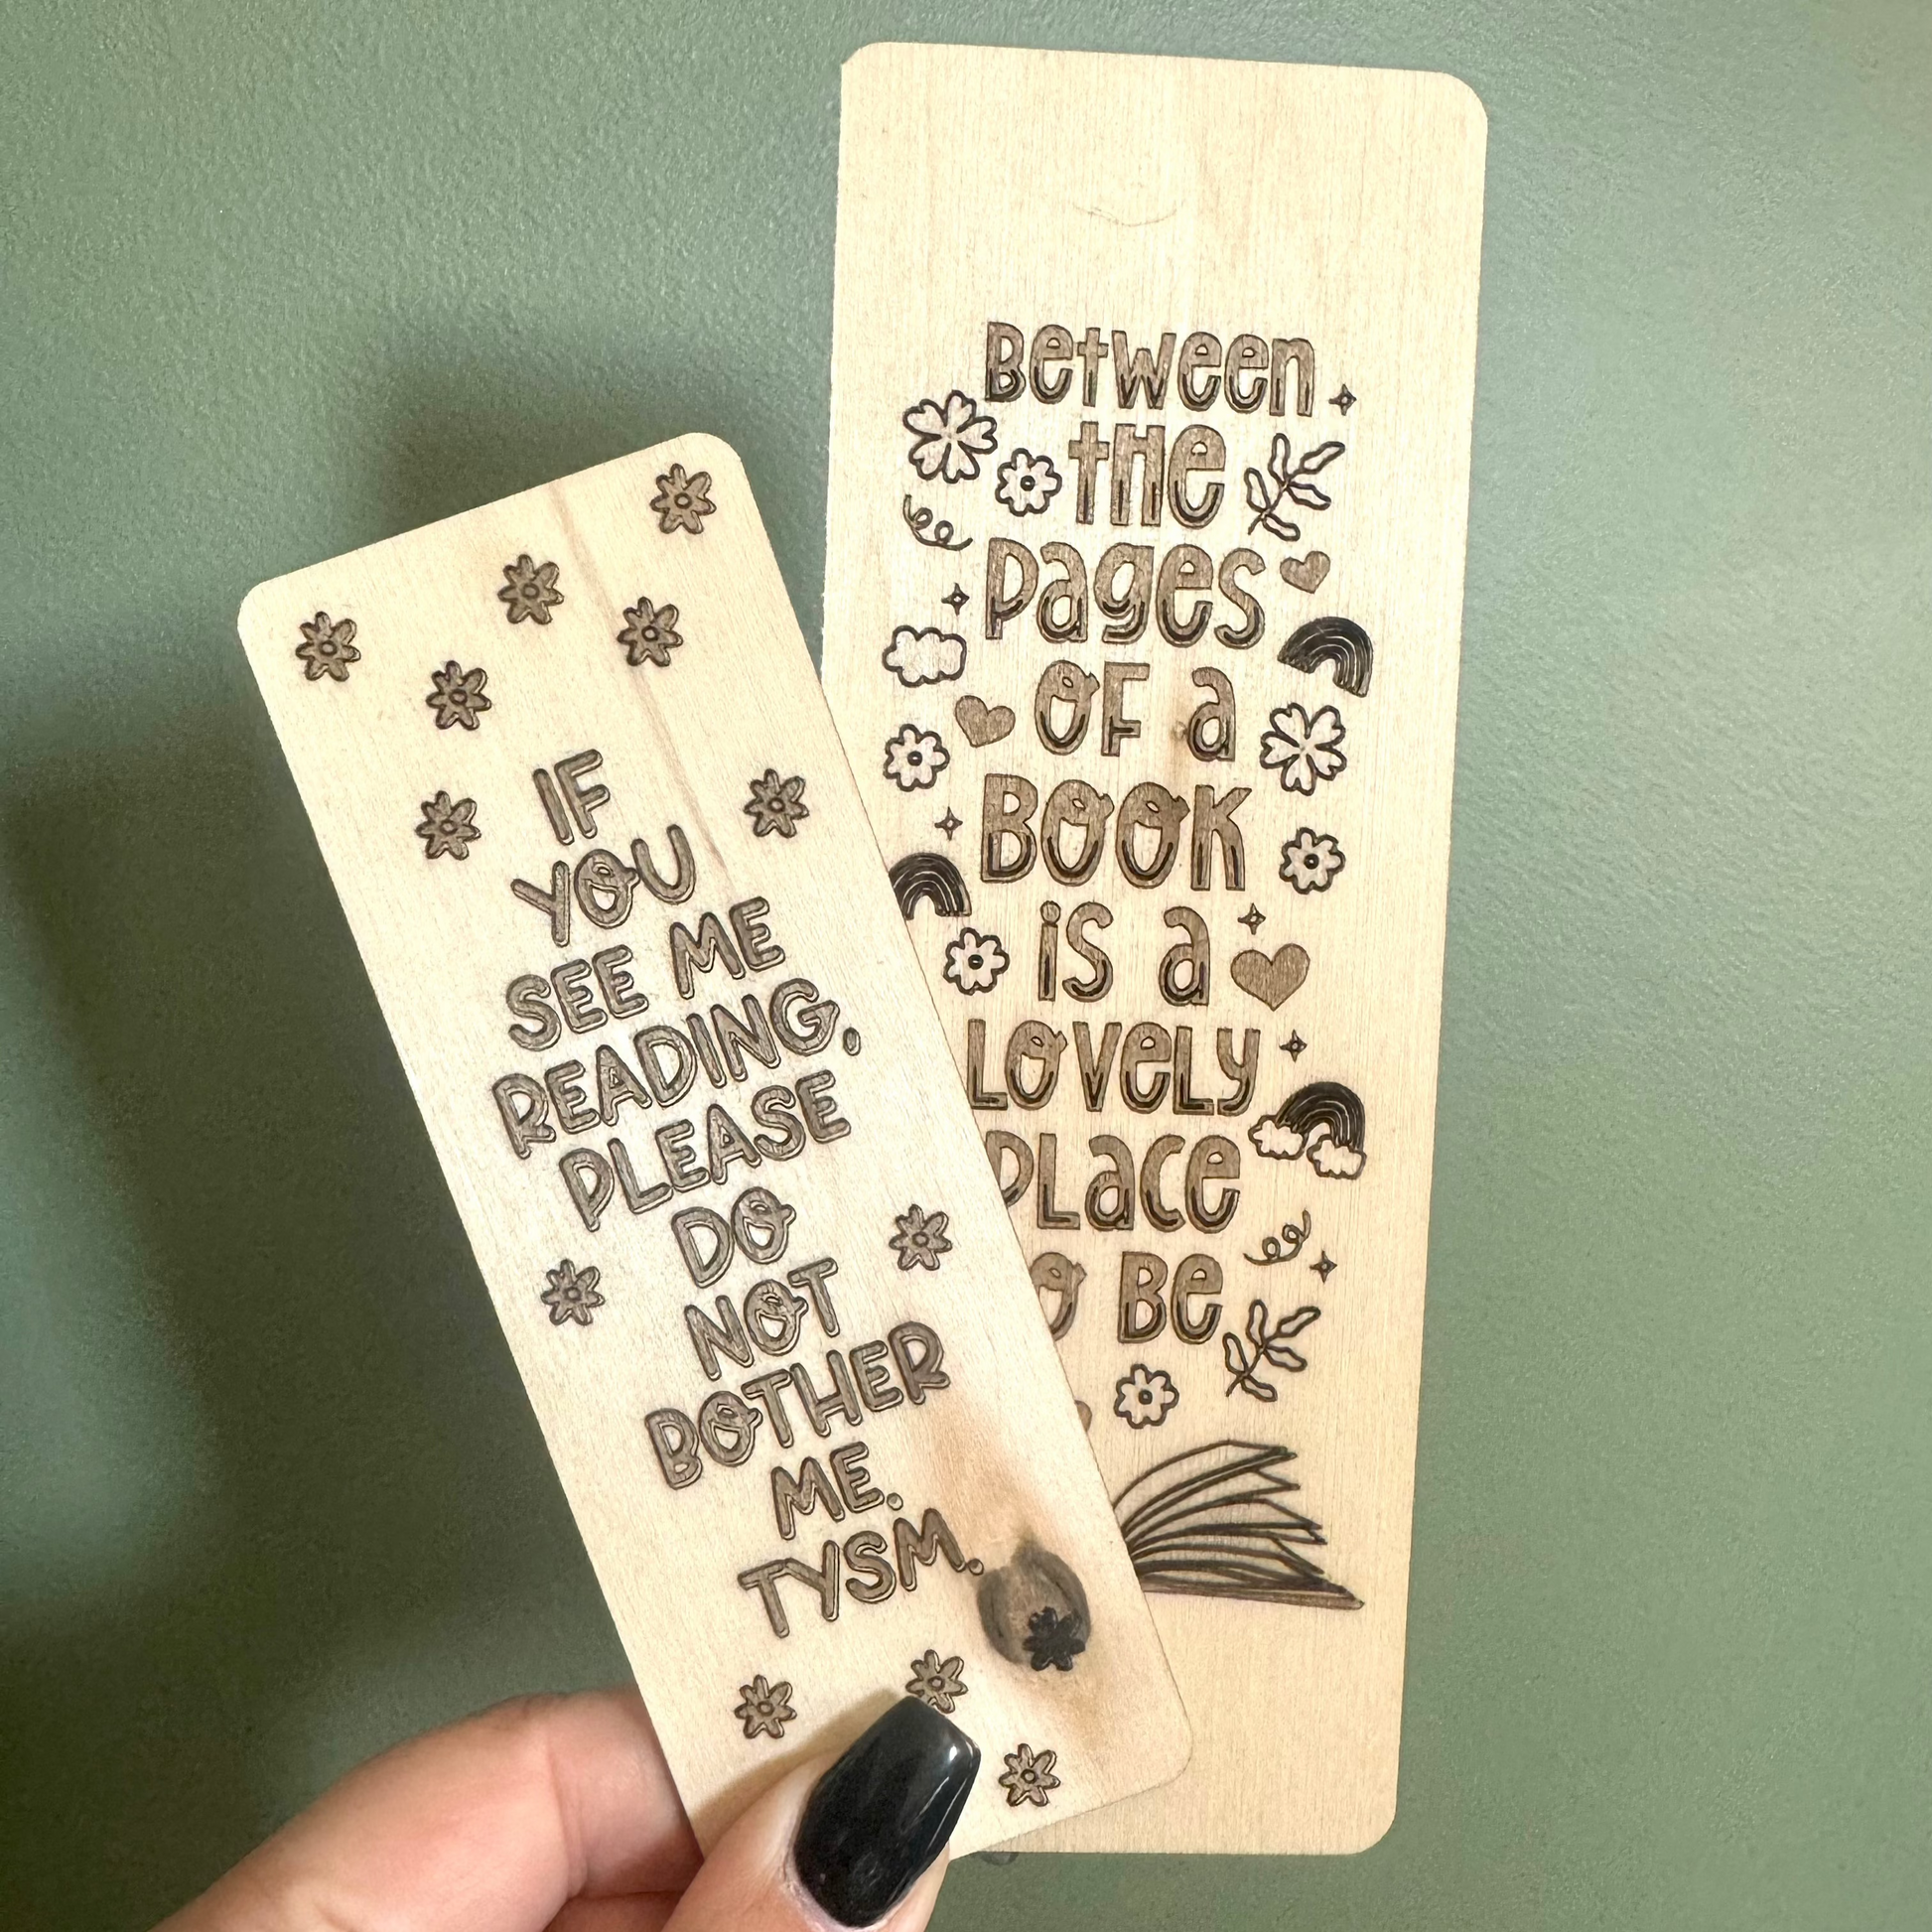 IF
YOU
SEE ME
READING,
PLEASE
DO
NOT
BOTHER
ME.
TYSM.
Between
the
pages
OF a
BOOK
is a
LOVeLY
PLace
Be